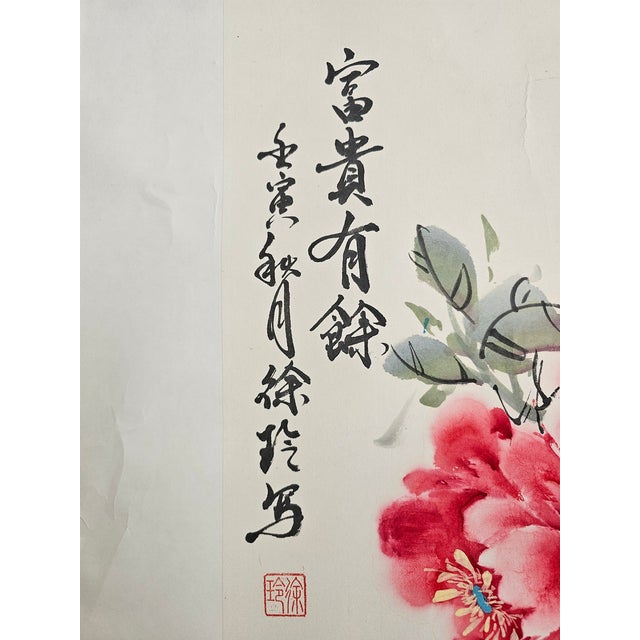 富貴有餘
壬寅秋月徐玲写
徐玲